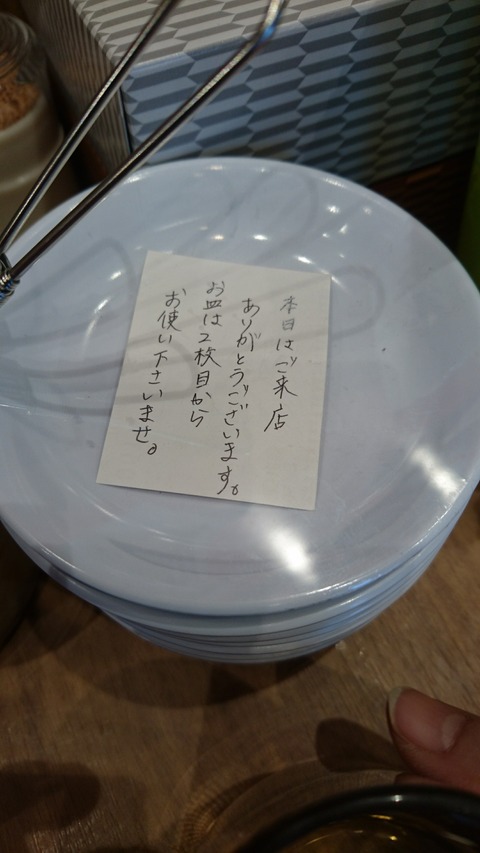 本日はご来店
ありがとうございます。
お皿は2枚目から
お使い下さいませ。